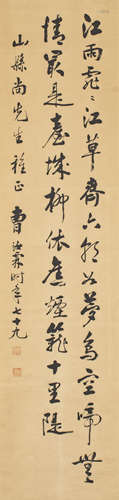 江雨霏霏江草齊六朝如夢鳥空啼無
情最是臺城柳依舊煙籠十里隄
山縣尚先生雅正
曹汝霖時年七十九